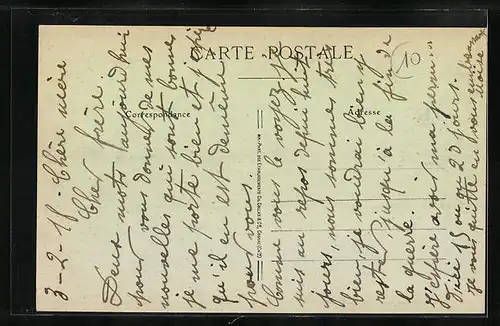 CARTE POSTALE
Correspondance
Adresse
10
3-2-18. Chère mère
Cher frère.
Deux mots aujourd'hui
pour vous donner de mes
nouvelles qui sont bonnes
je me porte bien et
qu'il en est de même
pour vous.
Comme vous le voyez je
suis au repos depuis huit
jours, nous sommes très
bien, je voudrai bien y
rester jusqu'à la fin de
la guerre.
J'espère avoir ma permis
d'ici 15 ou 20 jours.
je vous quitte en vous embrassant